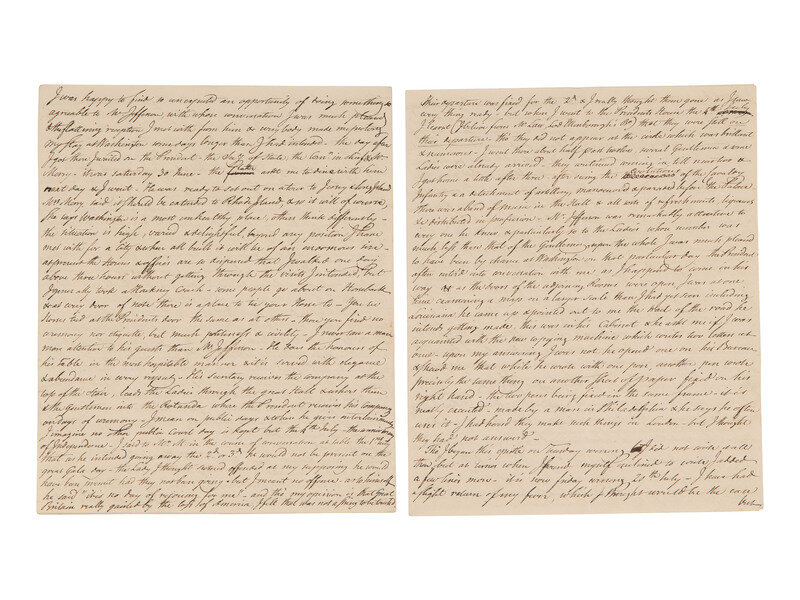 I was happy to find so unexpected an opportunity of doing something
agreable to Mr Jefferson, with whose conversation I was much pleased
& the flattering reception I met with from him & every body made me prolong
my stay at Washington some days longer than I had intended. the day after
I got there I waited on the President, the Secy of State, the Comr in chief & Mr
Merry. it was saturday 30 June. the latter ask me to dine with him
next day & I went. He was ready to set out on a tour to Jersy
Mrs Merry said it should be extended to Rhode Island, & so it will of course
she says Washington is a most unhealthy place, others think differently.
the situation is high, varied & delightful, beyond any position I have
met with for a City & when all built it will be of an enormous size
at present the houses & offices are so dispersed that I walked one day
above three hours without getting through the visits I intended, but
I generally took a Hackney Coach. some people go about on Horseback
& at every door of note there is a place to tie your Horse to. four or five
Horses tied at the Presidents door the same as at others. there you find no
ceremony nor etiquette, but much politeness & civility. I never saw a man
more attention to his guests than Mr Jefferson. He does the honours of
his table in the most hospitable manner & it is served with elegance
& abundance in every respect. His secretary receives the company at the
top of the stair, leads the Ladies through the great Hall & ushers them
& the Gentlemen into the Rotunda where the President receives his company
on days of ceremony. I mean on public days & when he gives entertainments
I imagine no other public Court day is kept but the 4th July. the anniversary
of Independence. I said to Mr M. in the course of conversation at table the 1st July
that as he intended going away the 2d or 3d he would not be present on the
great Gala day. the Lady I thought seemed offended at my supposing he would
have been present had they not been going. but I meant no offence. as to himself
he said "it is no day of rejoicing for me". and tho' my opinion is that Great
Britain really gained by the loss of America, I felt that was not a string to be touched
Their departure was fixed for the 2d & I really thought them gone as I saw
every thing ready. but when I went to the Presidents House the 4th
I learnt that they were still on
their departure tho' they did not appear at the
& numerous. I went there about half past twelve. several Gentlemen & some
Ladies were already arrived. they continued coming in till near two &
I got home a little after three. after seeing the evolutions of the Cavalry
Infantry & a detachment of artillery, manoeuvred & paraded before the Palace
there was a band of music in the Hall & all sorts of refreshments, liqueurs
&c distributed in profusion. Mr Jefferson was remarkably attentive to
every one he knew & particularly so to the Ladies whose number was
much less than that of the Gentlemen. upon the whole I was much pleased
to have been by chance at Washington on that particular day. the President
often entered into conversation with me as I happened to come in his
way & as the doors of the adjoining Rooms were open I was at one
time examining a map on a larger scale than I had yet seen including
Louisiana he came up & pointed out to me the start of the road he
intends getting made. this was in his Cabinet & he ask me if I was
acquainted with the new copying machine which writes two letters at
once. upon my answering I was not he opened one on his Bureau
& shewed me that while he wrote with one pen, another pen wrote
precisely the same thing on another sheet of paper fixed on his
right hand. the two pens being fixed in the same frame. it is
really curious. made by a man in Philadelphia & he says he often
uses it. I had heard they made such things in London. but I thought
they had not answered.
Tho' I began this epistle on Tuesday evening I did not write all
then, but at times when I found myself inclined to write, I added
a few lines more. it is now friday evening 20th July. I have had
a slight return of my fever, which I thought would be the case